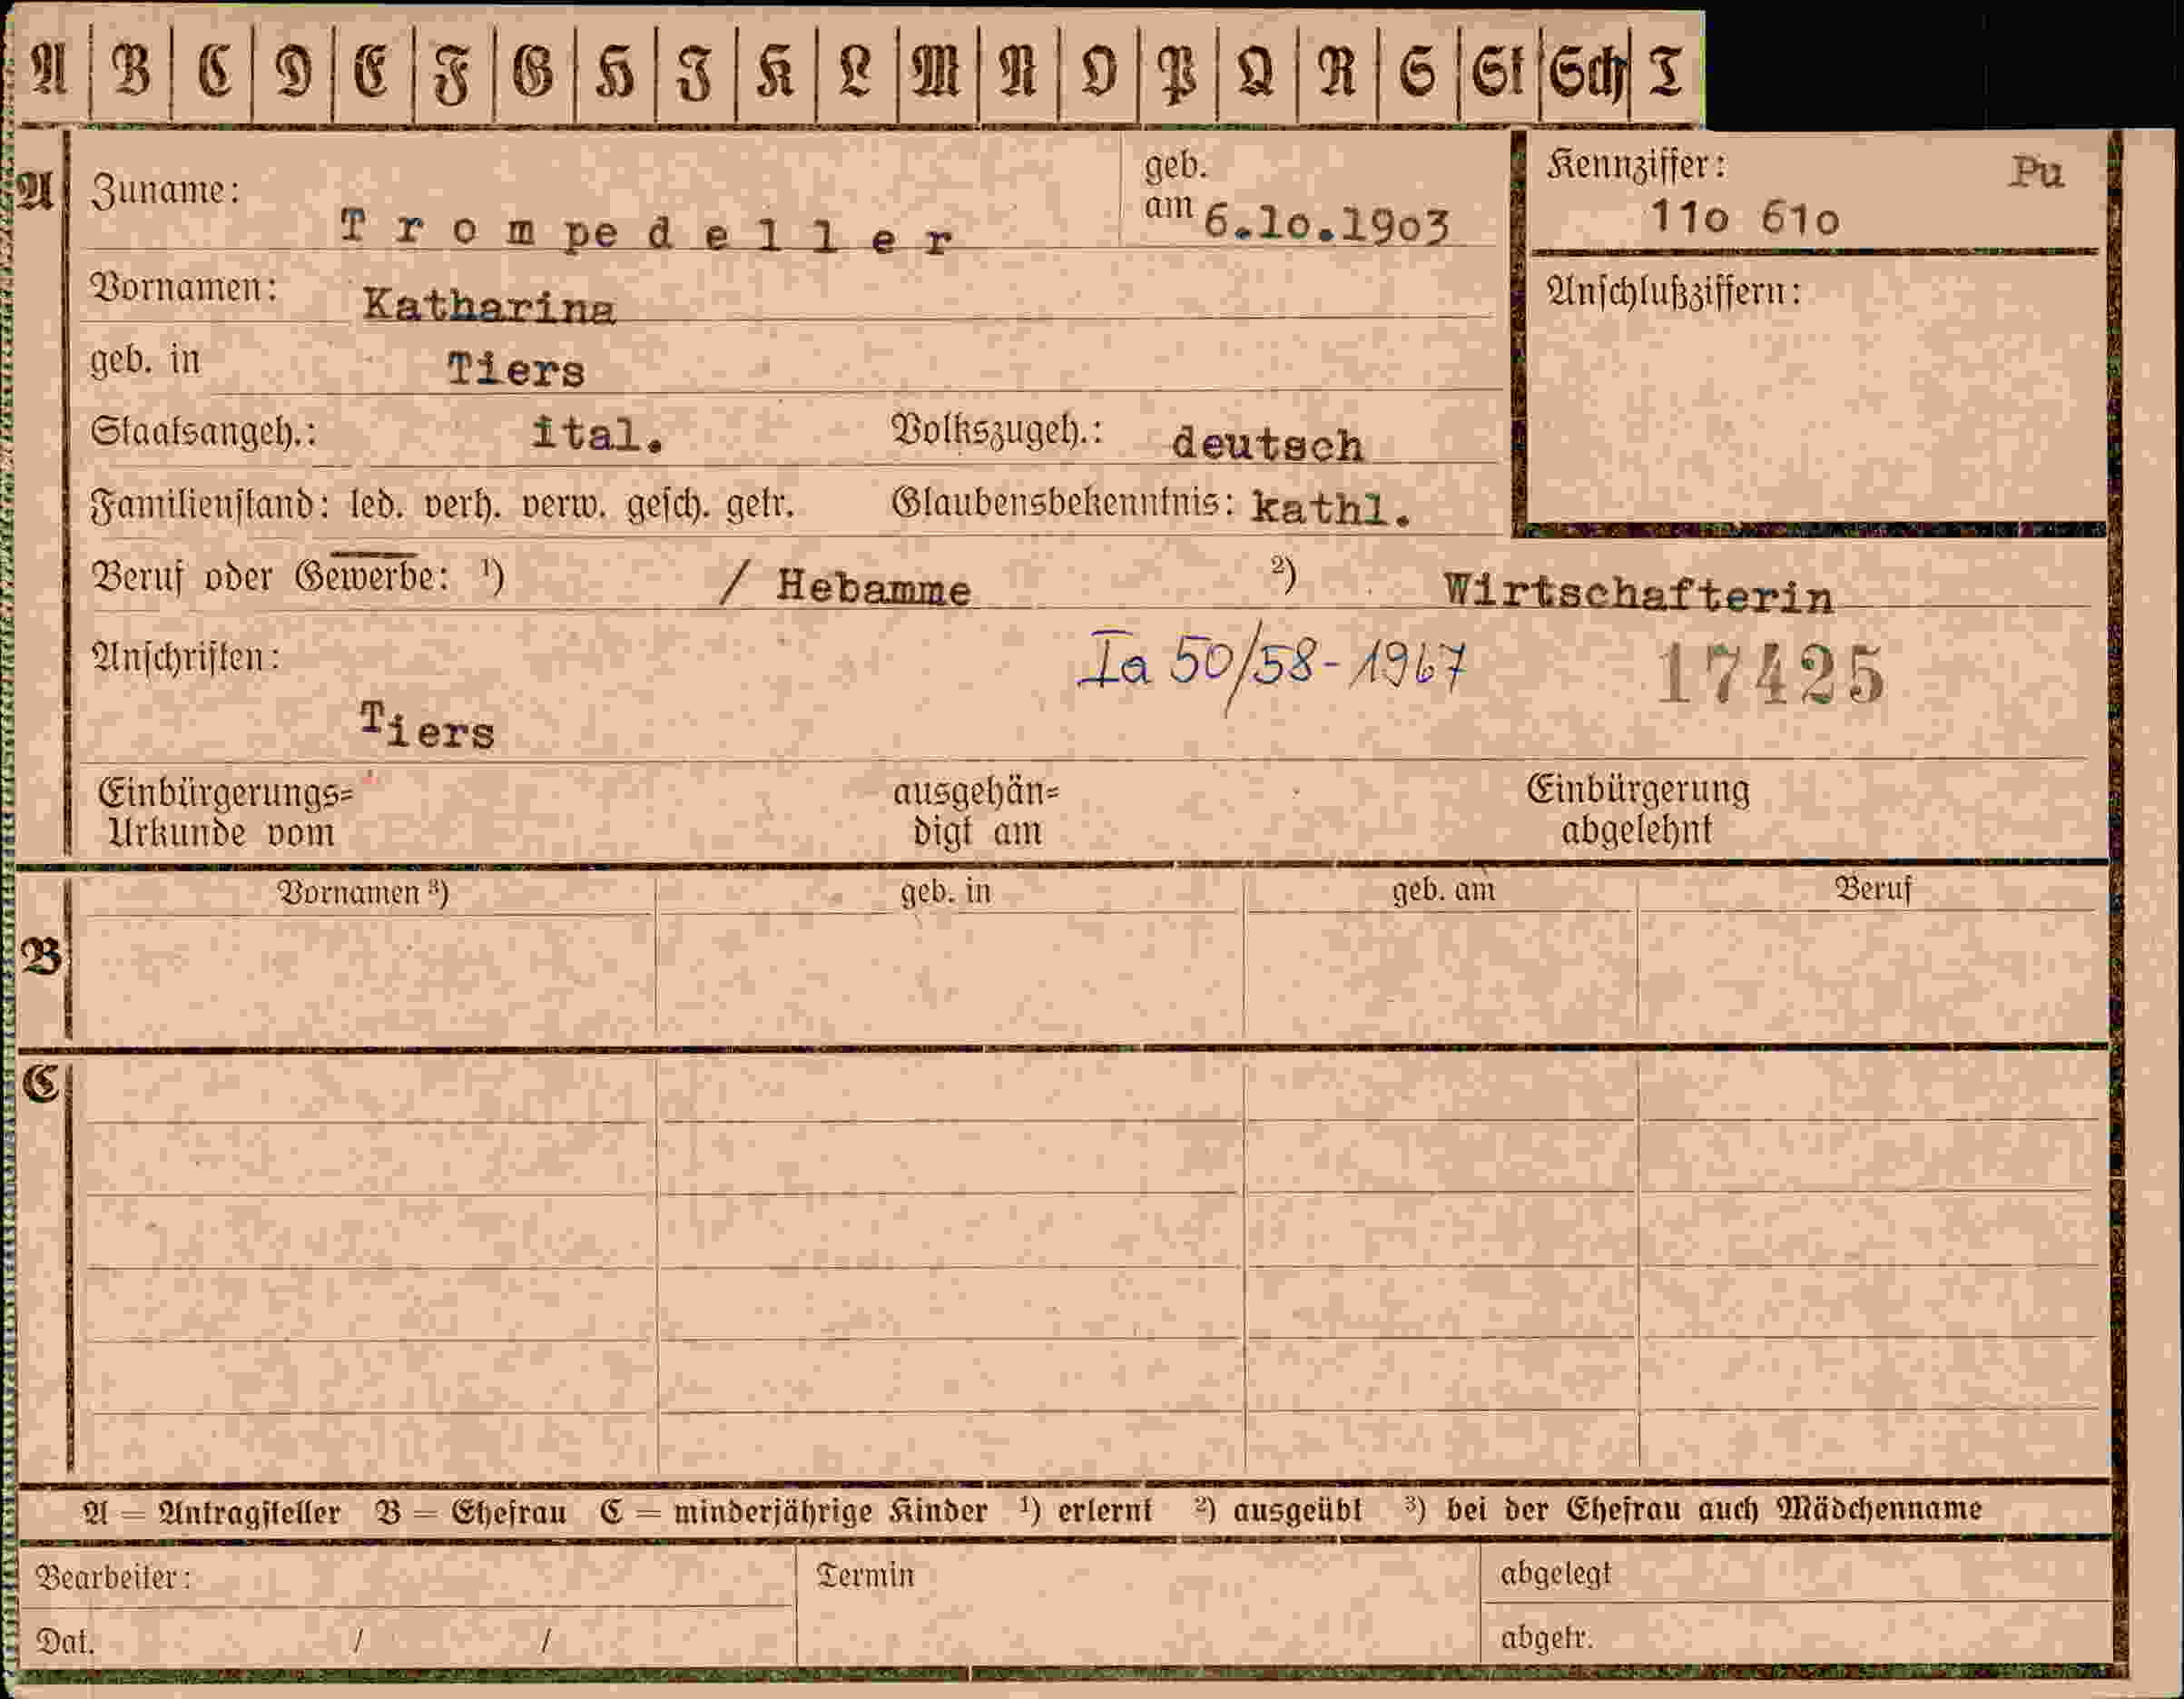 A B C D E F G H I K L M N O P Q R S St Sch T
A Zuname: Trompedeller geb. am 6.10.1903 Kennziffer: Pu
110 610
Vornamen: Katharina Anschlußziffern:
geb. in Tiers
Staatsangeh.: ital. Volkszugeh.: deutsch
Familienstand: led. verh. verw. gesch. getr. Glaubensbekenntnis: kathl.
Beruf oder Gewerbe: ¹) / Hebamme ²) Wirtschafterin
Anschriften: Ia 50/58-1967 17425
Tiers
Einbürgerungs= ausgehän= Einbürgerung
Urkunde vom digt am abgelehnt
Vornamen ³) geb. in geb. am Beruf
B
C
A = Antragsteller B = Ehefrau C = minderjährige Kinder ¹) erlernt ²) ausgeübt ³) bei der Ehefrau auch Mädchenname
Bearbeiter: Termin abgelegt
Dat. / / abgetr.